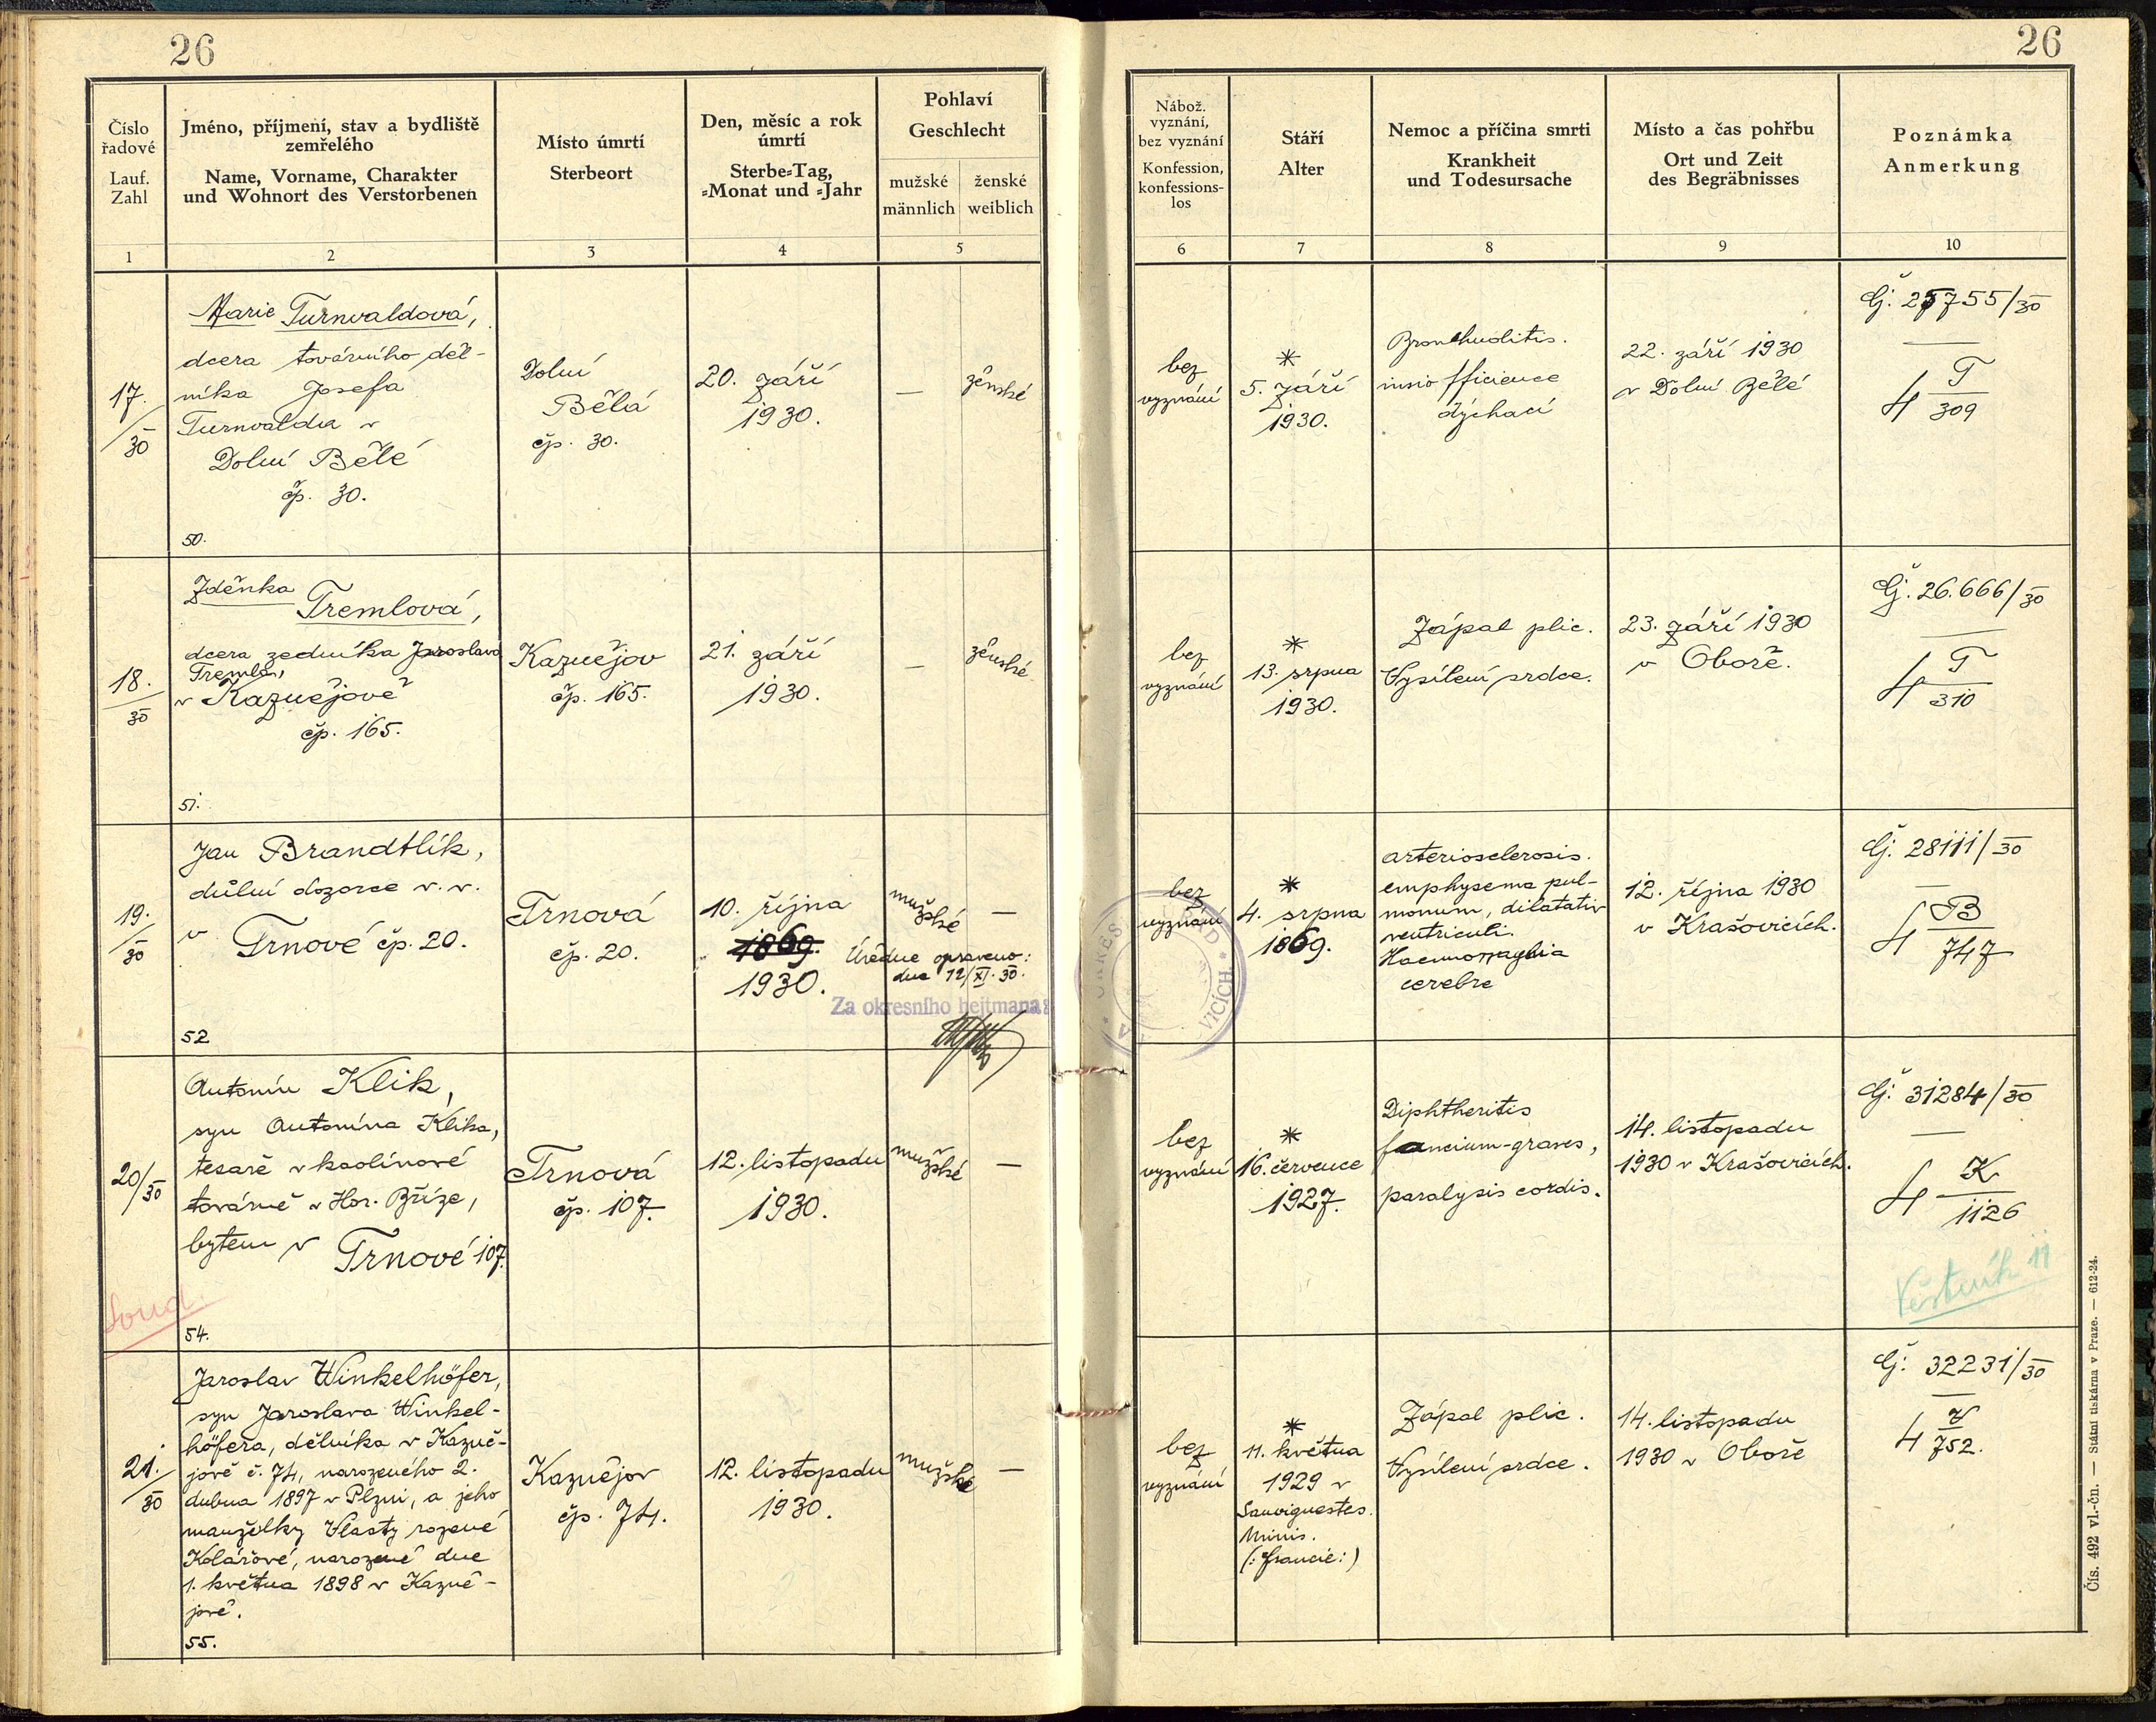 26
26
Číslo řadové
Lauf. Zahl
1
Jméno, příjmení, stav a bydliště
zemřelého
Name, Vorname, Charakter
und Wohnort des Verstorbenen
2
Místo úmrtí
Sterbeort
3
Den, měsíc a rok
úmrtí
Sterbe-Tag,
-Monat und -Jahr
4
Pohlaví
Geschlecht
mužské
männlich
ženské
weiblich
5
Nábož.
vyznání,
bez vyznání
Konfession,
konfessions-
los
6
Stáří
Alter
7
Nemoc a příčina smrti
Krankheit
und Todesursache
8
Místo a čas pohřbu
Ort und Zeit
des Begräbnisses
9
Poznámka
Anmerkung
10
17./30
Marie Turnvaldová,
dcera továrního děl-
níka Josefa
Turnvalda v
Dolní Bělé
čp. 30.
50.
Dolní
Bělá
čp. 30.
20. září
1930.
—
ženské
bez
vyznání
*
5. září
1930.
dýchací
22. září 1930
v Dolní Bělé
Čj. 25755/30
4 T/309
18./30
Zděnka
Tremlová,
dcera zedníka Jaroslava
Tremla,
v Kaznějově
čp. 165.
51.
Kaznějov
čp. 165.
21. září
1930.
—
ženské
bez
vyznání
*
13. srpna
1930.
Zápal plic.
Vysílení srdce.
23. září 1930
v Oboře.
Čj. 26.666/30
4 T/310
19./30
Jan Brandtlík,
důlní dozorce v. v.
v Trnové čp. 20.
52
Trnová
čp. 20.
10. října
1869.
1930.
Úředně opraveno:
dne 12/XI. 30.
Za okresního hejtmana:
mužské
—
bez
vyznání
*
4. srpna
1869.
arteriosclerosis.
emphysema pul-
monum, dilatativ
ventriculi.
Haemorraghia
cerebre
12. října 1930
v Krašovicích.
Čj. 28111/30
4 B/747
20/30
Antonín Klik,
syn Antonína Klika,
tesaře v kaolinové
továrně v Hor. Bříze,
bytem v Trnové 107.
54.
Trnová
čp. 107.
12. listopadu
1930.
mužské
—
bez
vyznání
*
16. července
1927.
Diphtheritis
faucium-graves,
paralysis cordis.
14. listopadu
1930 v Krašovicích.
Čj. 31284/30
4 K/1126
Věstník 11
21./30
Jaroslav Winkelhöfer,
syn Jaroslava Winkel-
höfera, dělníka v Kazně-
jově č. 74, narozeného 2.
dubna 1897 v Plzni, a jeho
manželky Vlasty rozené
Kolářové, narozené dne
1. května 1898 v Kazně-
jově.
55.
Kaznějov
čp. 74.
12. listopadu
1930.
mužské
—
bez
vyznání
*
11. května
1929 v
(: Francie:)
Zápal plic.
Vysílení srdce.
14. listopadu
1930 v Oboře
Čj. 32231/30
4 V/752.
Čís. 492 vl.-čn. — Státní tiskárna v Praze. — 612-24.